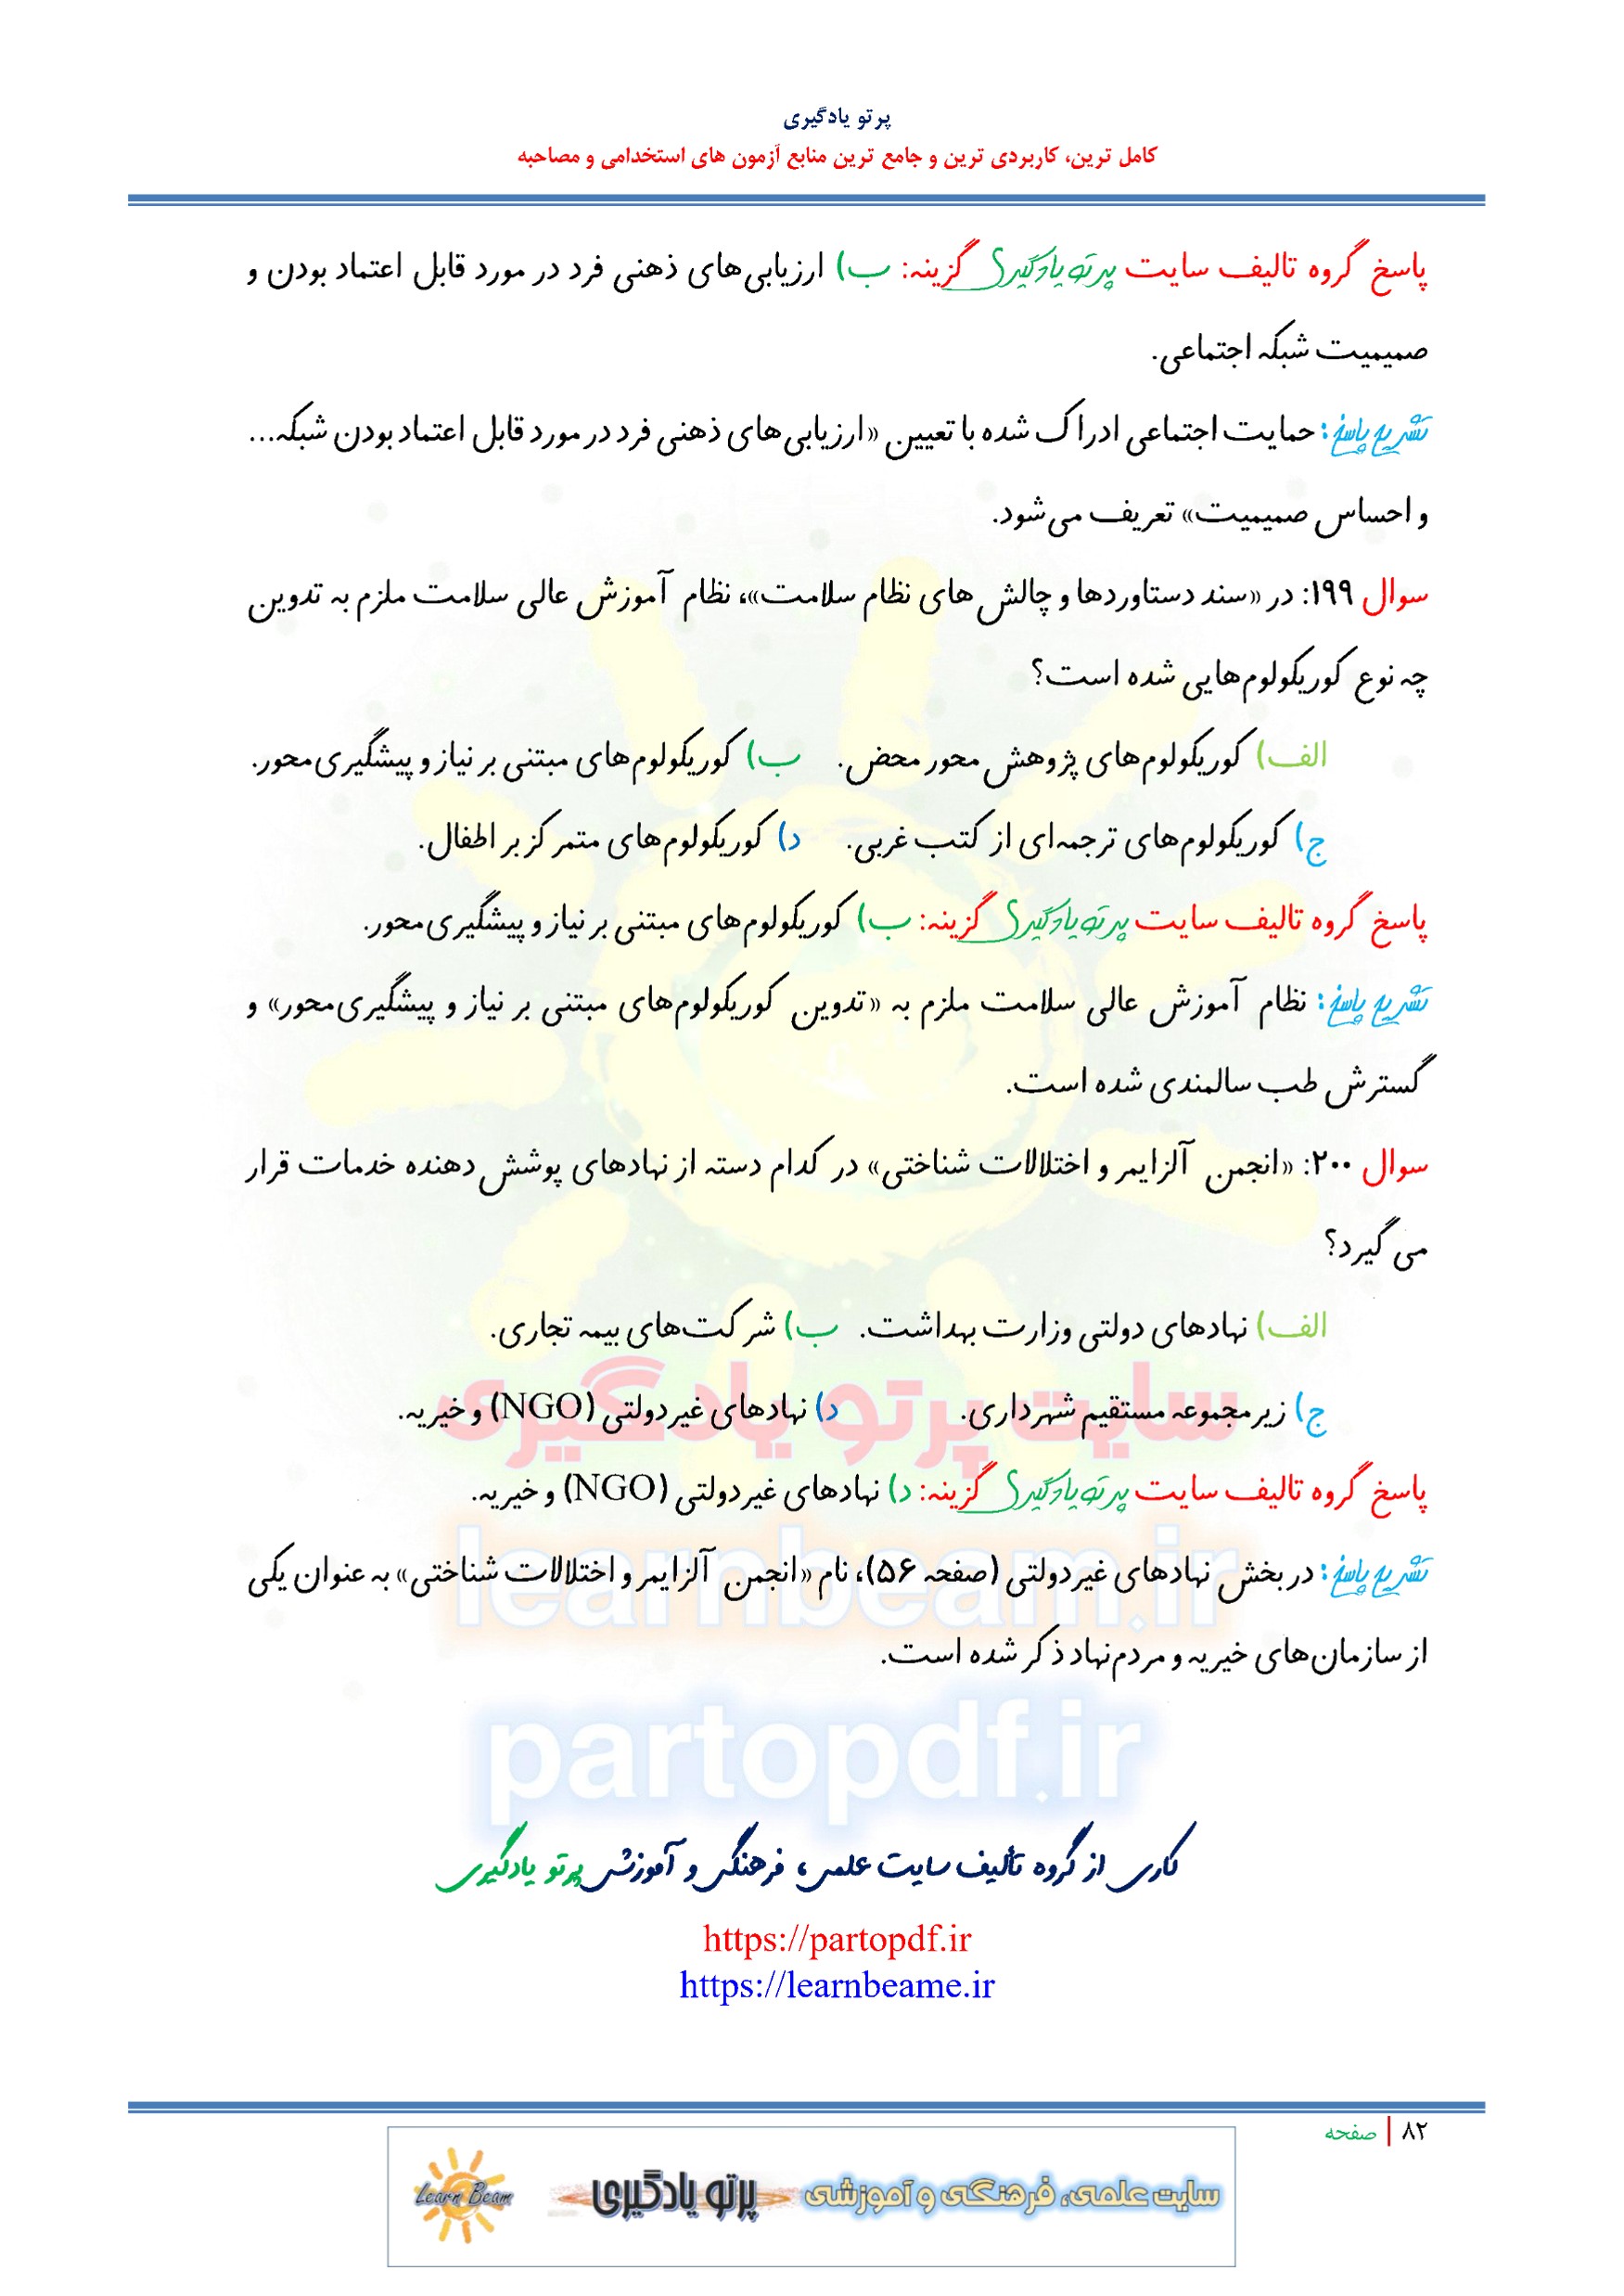 پرتو یادگیری
کامل ترین، کاربردی ترین و جامع ترین منابع آزمون های استخدامی و مصاحبه
پاسخ گروه تالیف سایت پرتو یادگیری گزینه: ب) ارزیابی‌های ذهنی فرد در مورد قابل اعتماد بودن و
صمیمیت شبکه اجتماعی.
تشریح پاسخ: حمایت اجتماعی ادراک شده با تعیین «ارزیابی‌های ذهنی فرد در مورد قابل اعتماد بودن شبکه...
و احساس صمیمیت» تعریف می‌شود.
سوال ۱۹۹: در «سند دستاوردها و چالش های نظام سلامت»، نظام آموزش عالی سلامت ملزم به تدوین
چه نوع کوریکولوم‌هایی شده است؟
الف) کوریکولوم‌های پژوهش محور محض. ب) کوریکولوم‌های مبتنی بر نیاز و پیشگیری‌محور.
ج) کوریکولوم‌های ترجمه‌ای از کتب غربی. د) کوریکولوم‌های متمرکز بر اطفال.
پاسخ گروه تالیف سایت پرتو یادگیری گزینه: ب) کوریکولوم‌های مبتنی بر نیاز و پیشگیری‌محور.
تشریح پاسخ: نظام آموزش عالی سلامت ملزم به «تدوین کوریکولوم‌های مبتنی بر نیاز و پیشگیری‌محور» و
گسترش طب سالمندی شده است.
سوال ۲۰۰: «انجمن آلزایمر و اختلالات شناختی» در کدام دسته از نهادهای پوشش دهنده خدمات قرار
می گیرد؟
الف) نهادهای دولتی وزارت بهداشت. ب) شرکت‌های بیمه تجاری.
ج) زیرمجموعه مستقیم شهرداری. د) نهادهای غیردولتی (NGO) و خیریه.
پاسخ گروه تالیف سایت پرتو یادگیری گزینه: د) نهادهای غیردولتی (NGO) و خیریه.
تشریح پاسخ: در بخش نهادهای غیردولتی (صفحه ۵۶)، نام «انجمن آلزایمر و اختلالات شناختی» به عنوان یکی
از سازمان‌های خیریه و مردم‌نهاد ذکر شده است.
سایت پرتو یادگیری
learnbeam.ir
partopdf.ir
کاری از گروه تألیف سایت علمی، فرهنگی و آموزشی پرتو یادگیری
https://partopdf.ir
https://learnbeame.ir
۸۲ | صفحه
سایت علمی، فرهنگی و آموزشی پرتو یادگیری Learn Beam